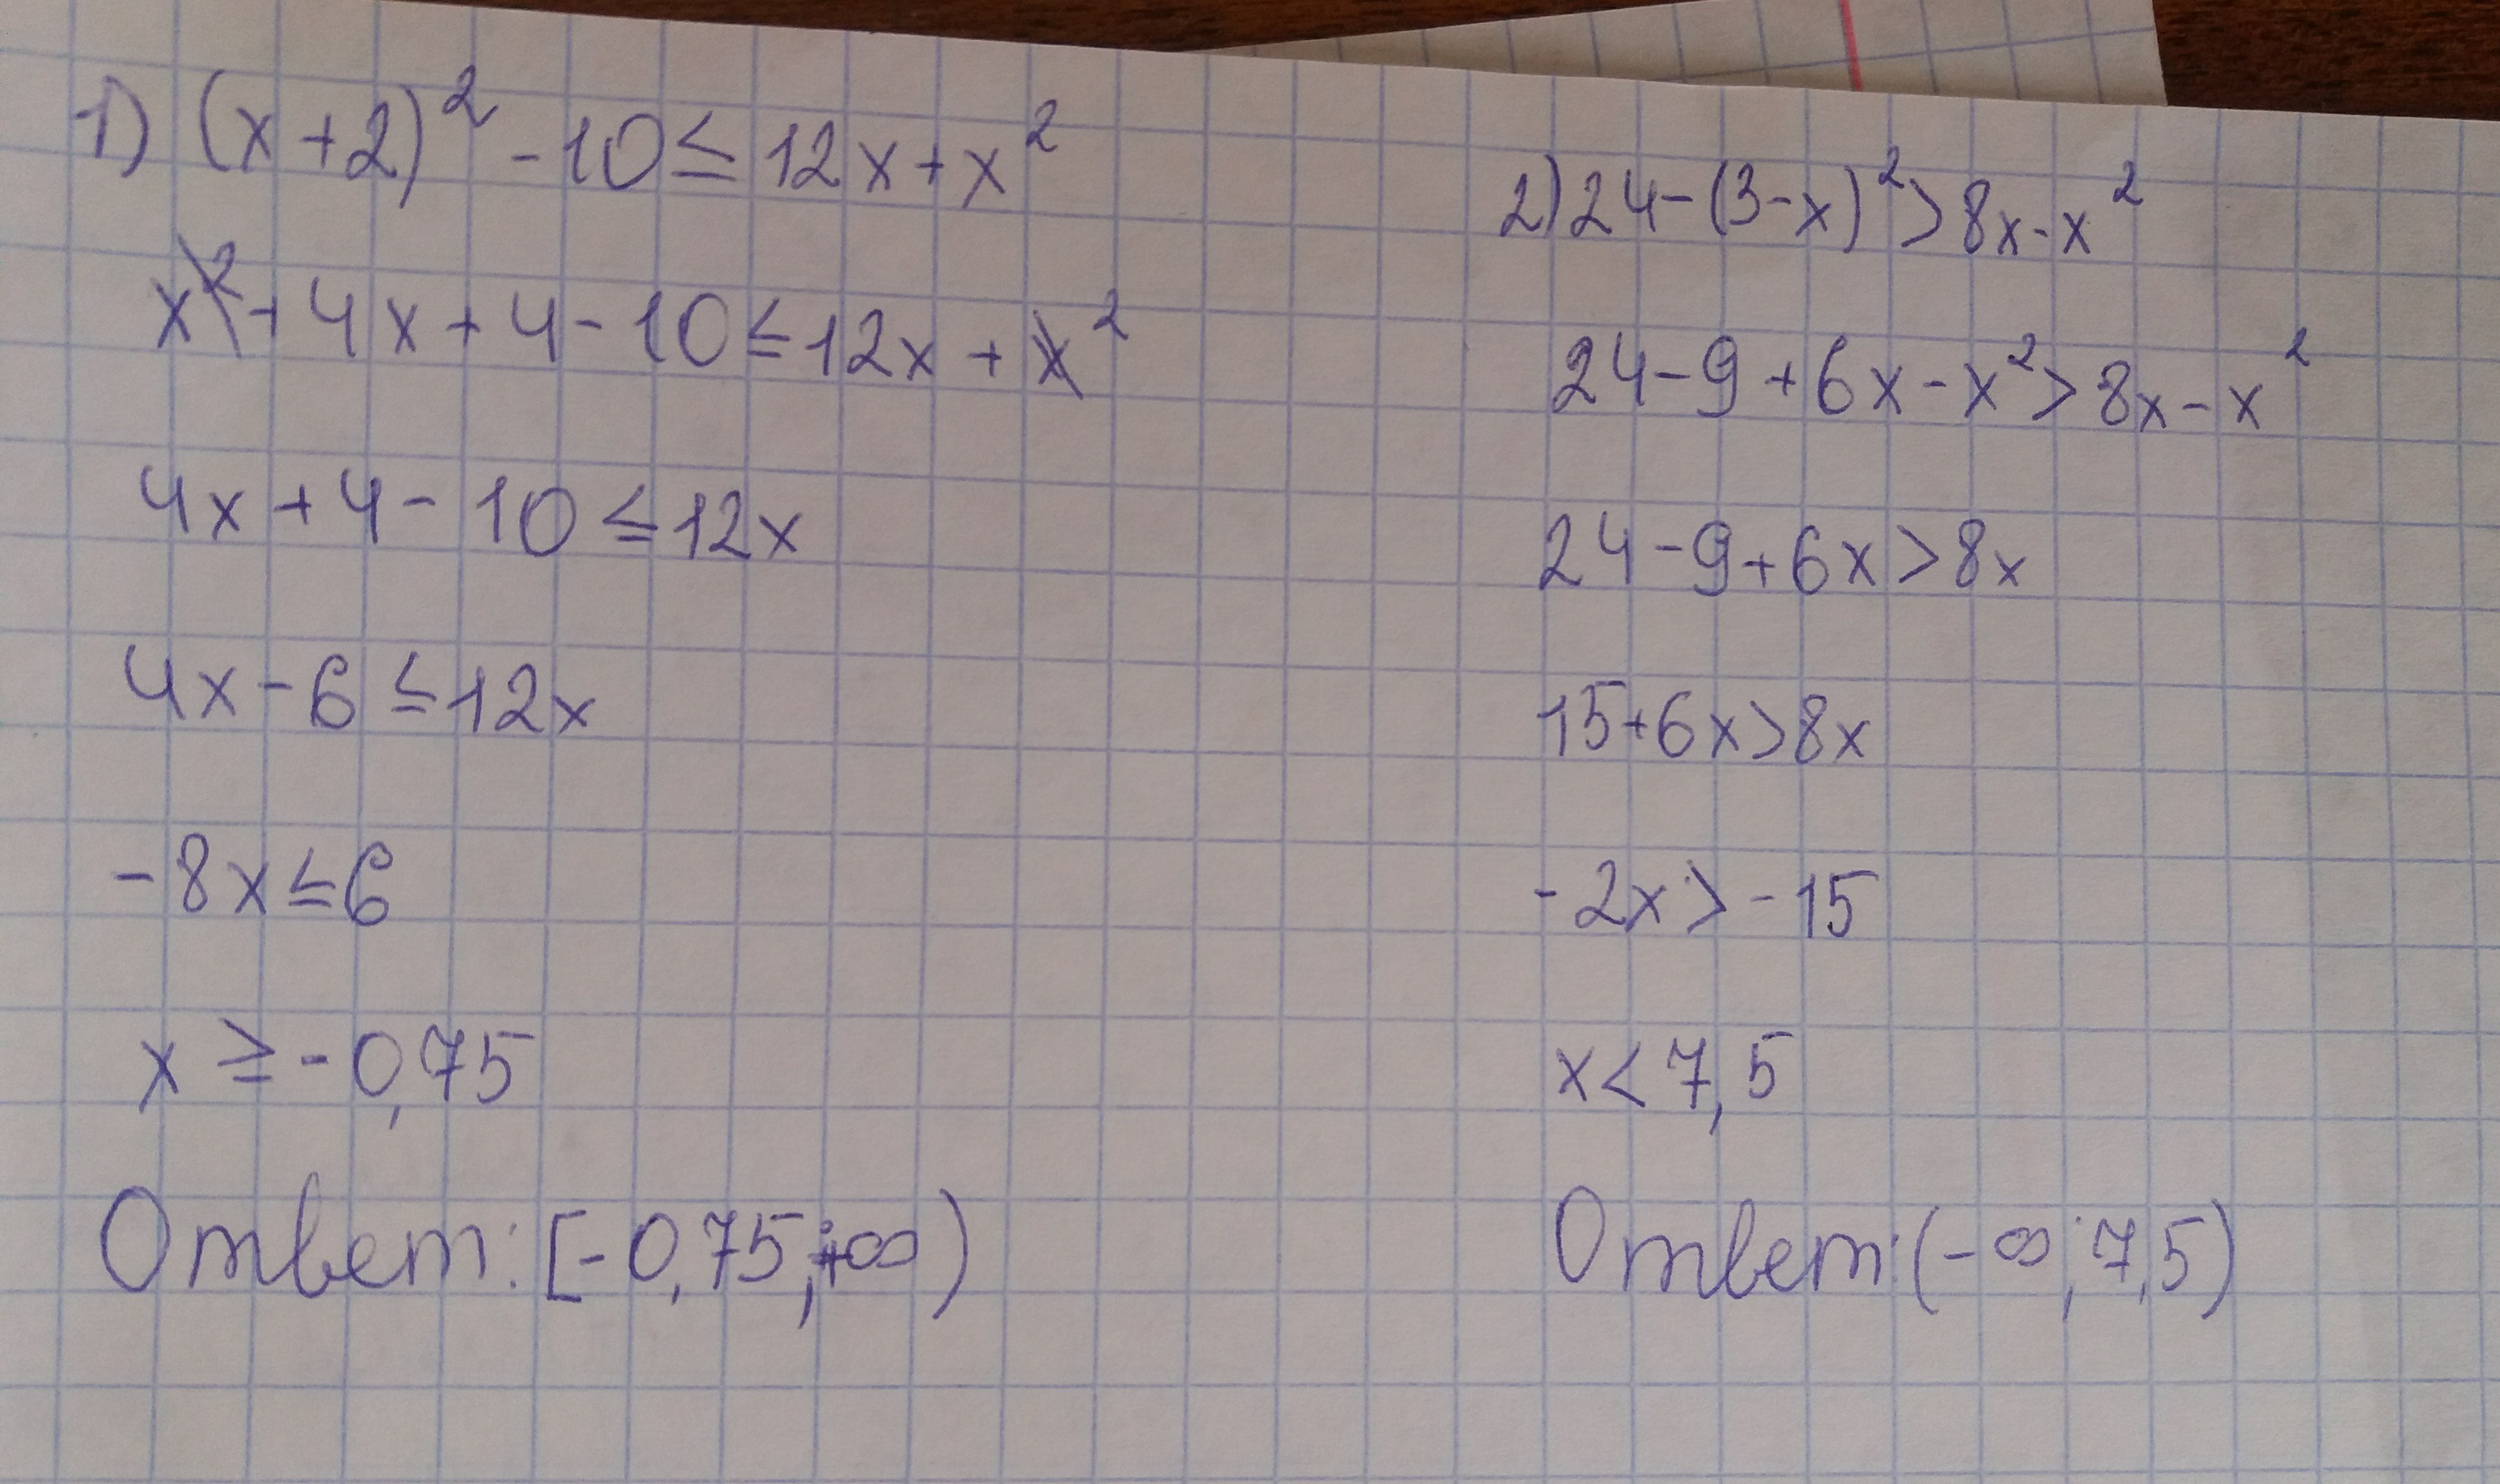 1) (x+2)² -10 ≤ 12x+x²
x² + 4x + 4 - 10 ≤ 12x + x²
4x + 4 - 10 ≤ 12x
4x - 6 ≤ 12x
-8x ≤ 6
x ≥ -0,75
Ответ: [-0,75; +∞)
2) 24-(3-x)² > 8x-x²
24-9+6x-x² > 8x-x²
24-9+6x > 8x
15+6x > 8x
-2x > -15
x < 7,5
Ответ: (-∞; 7,5)